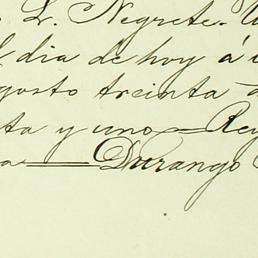 L. Negrete.
dia de hoy á
agosto treinta
ta y uno — Rey
a — Durango